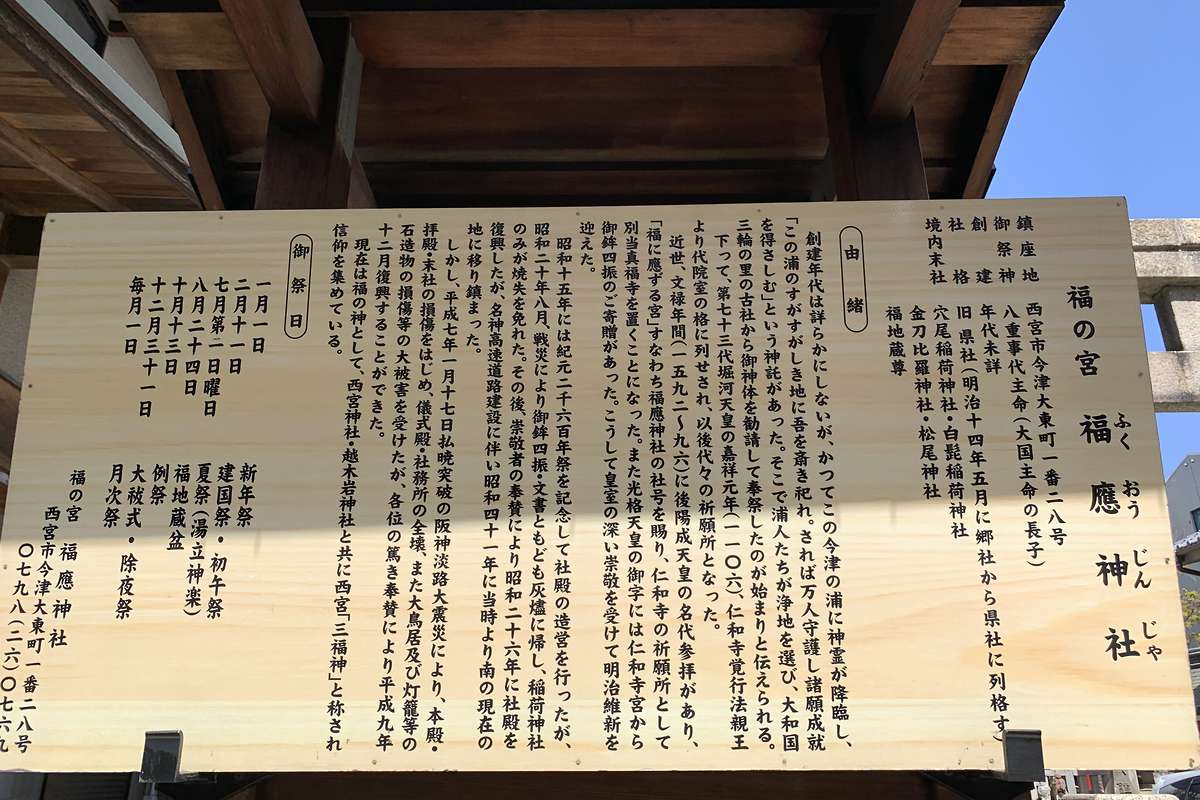 福の宮 福應神社
ふくおうじんじゃ
鎮座地 西宮市今津大東町一番二八号
御祭神 八重事代主命(大国主命の長子)
創建 年代未詳
社格 旧県社(明治十四年五月に郷社から県社に列格す
境内末社 穴尾稲荷神社・白髭稲荷神社
金刀比羅神社・松尾神社
福地蔵尊
由緒
創建年代は詳らかにしないが、かつてこの今津の浦に神霊が降臨し、
「この浦のすがすがしき地に吾を斎き祀れ。されば万人守護し諸願成就
を得さしむ」という神託があった。そこで浦人たちが浄地を選び、大和国
三輪の里の古社から御神体を勧請して奉祭したのが始まりと伝えられる。
下って、第七十三代堀河天皇の嘉祥元年(一一〇六)、仁和寺覚行法親王
より代院室の格に列せされ、以後代々の祈願所となった。
近世、文禄年間(一五九二〜九六)に後陽成天皇の名代参拝があり、
「福に應ずる宮」すなわち福應神社の社号を賜り、仁和寺の祈願所として
別当真福寺を置くことになった。また光格天皇の御字には仁和寺宮から
御鉾四振のご寄贈があった。こうして皇室の深い崇敬を受けて明治維新を
迎えた。
昭和十五年には紀元二千六百年祭を記念して社殿の造営を行ったが、
昭和二十年八月、戦災により御鉾四振・文書ともども灰燼に帰し、稲荷神社
のみが焼失を免れた。その後、崇敬者の奉賛により昭和二十六年に社殿を
復興したが、名神高速道路建設に伴い昭和四十一年に当時より南の現在の
地に移り鎮まった。
しかし、平成七年一月十七日払暁突破の阪神淡路大震災により、本殿・
拝殿・末社の損傷をはじめ、儀式殿・社務所の全壊、また大鳥居及び灯籠等の
石造物の損傷等の大被害を受けたが、各位の篤き奉賛により平成九年
十二月復興することができた。
現在は福の神として、西宮神社・越木岩神社と共に西宮「三福神」と称され
信仰を集めている。
御祭日
一月一日 新年祭
二月十一日 建国祭・初午祭
七月第一日曜日 夏祭(湯立神楽)
八月二十四日 福地蔵盆
十月十三日 例祭
十二月三十一日 大祓式・除夜祭
毎月一日 月次祭
福の宮 福應神社
西宮市今津大東町一番二八号
〇七九八(二六)〇七六九